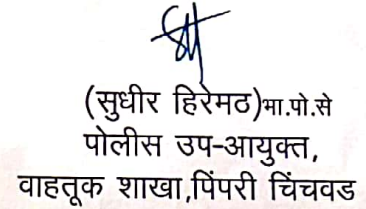 (सुधीर हिरेमठ)भा.पो.से
पोलीस उप-आयुक्त,
वाहतूक शाखा,पिंपरी चिंचवड